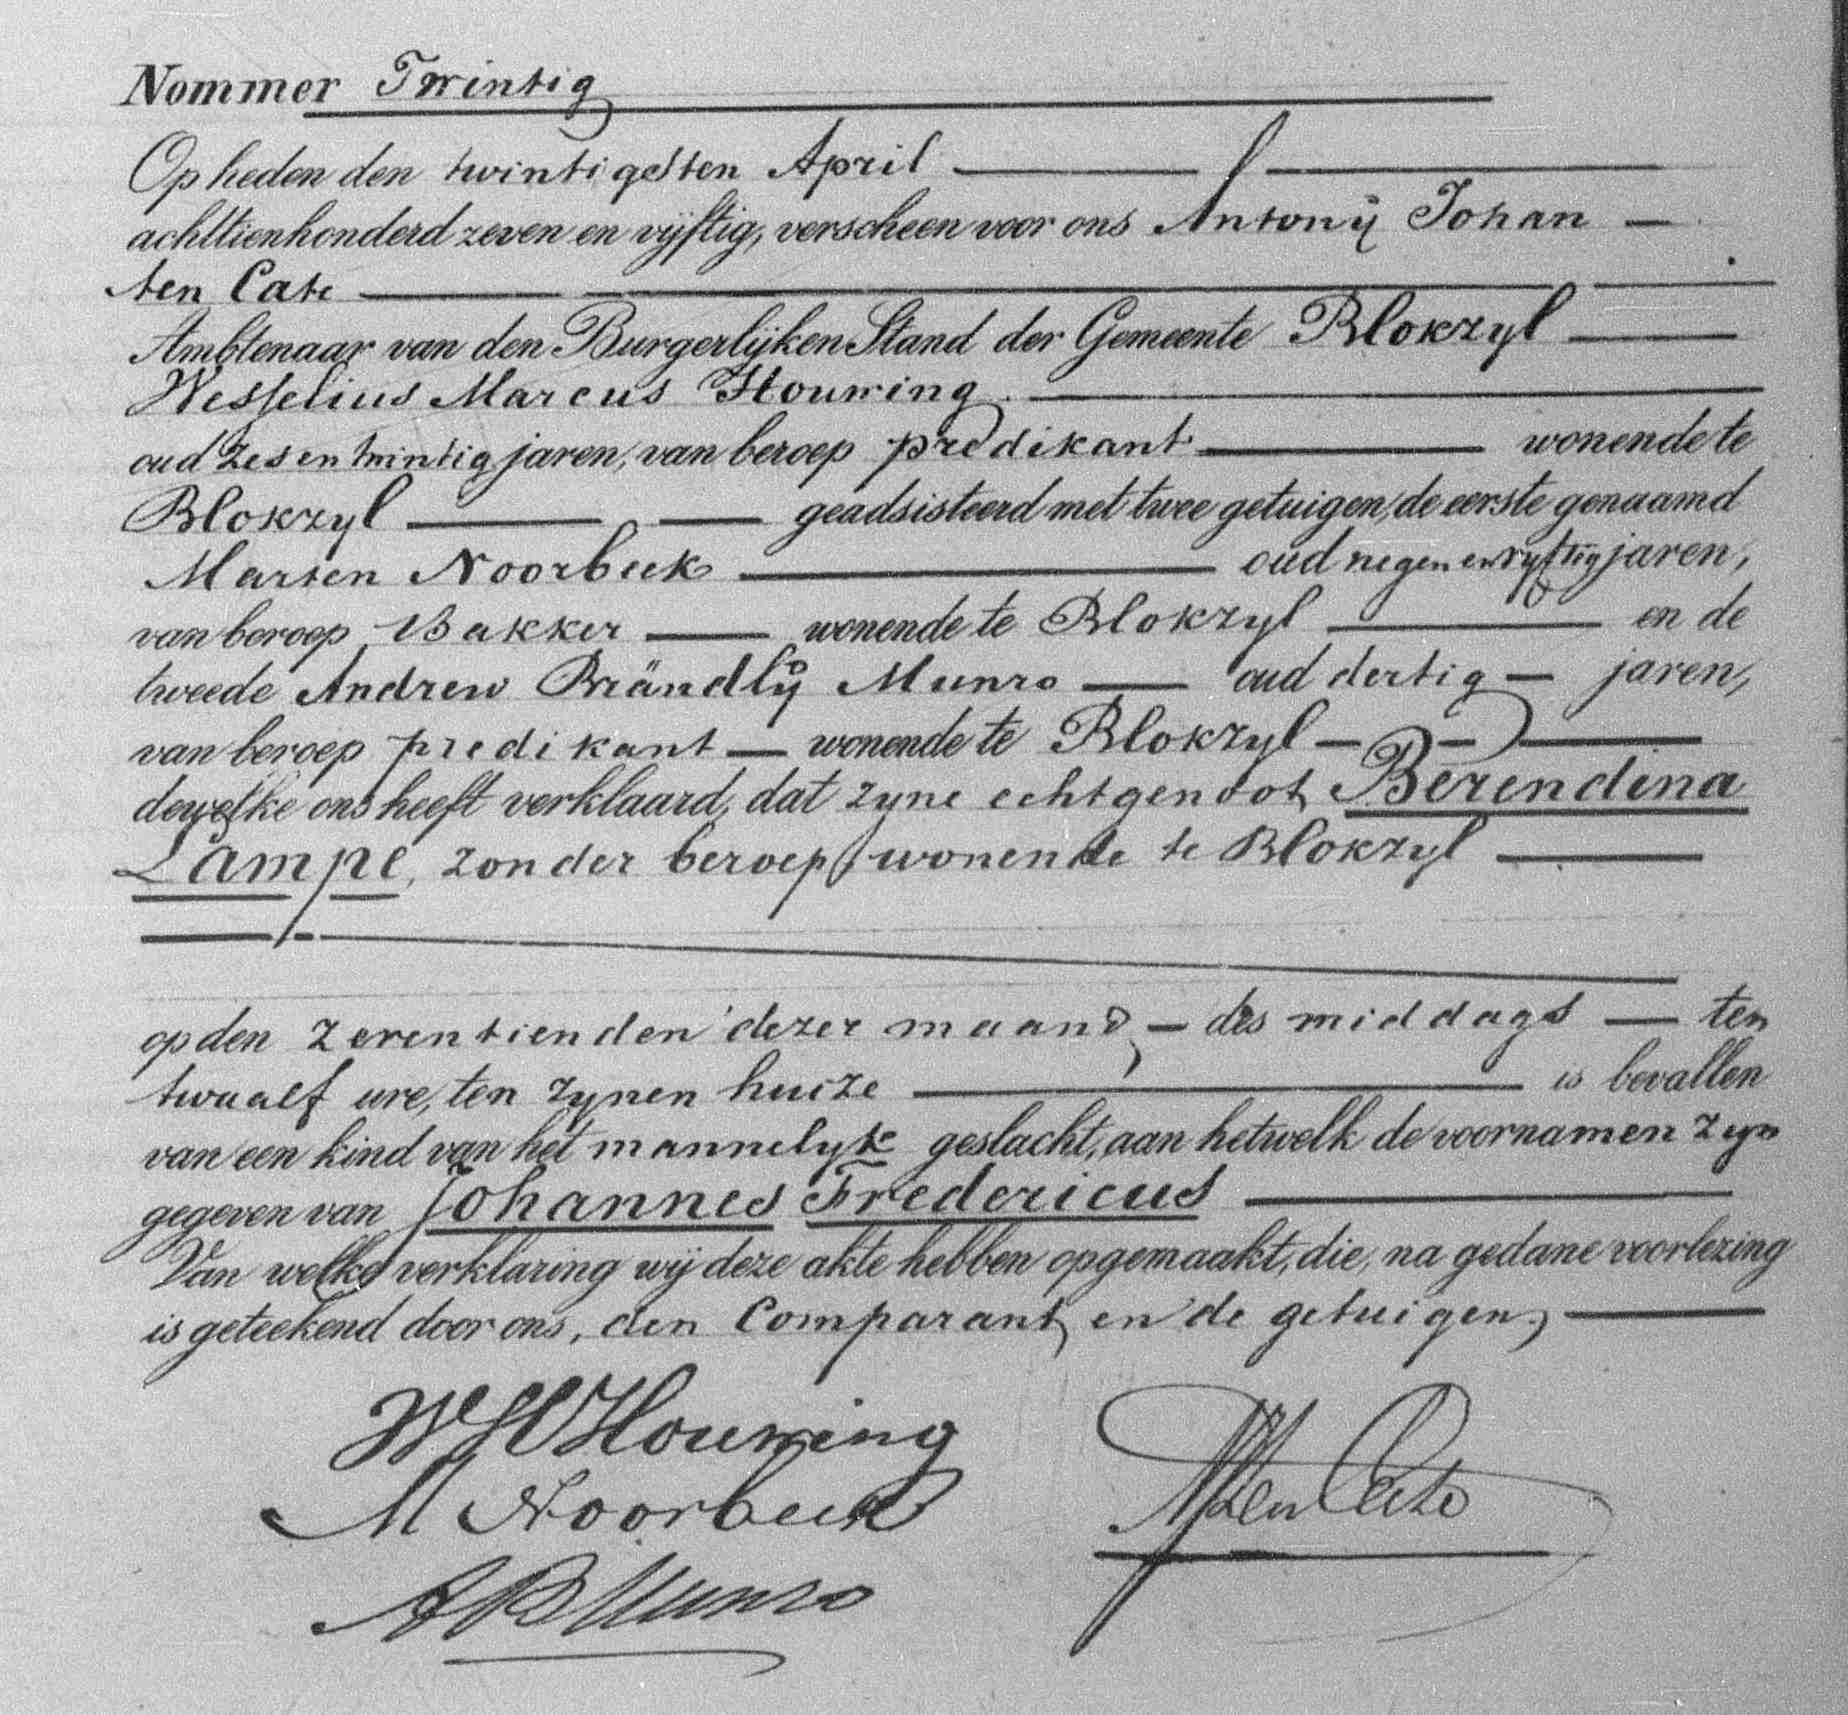 Nommer Twintig
Op heden den twintigsten April
achttienhonderd zeven en vijftig, verscheen voor ons Antonij Johan
ten Cate
Ambtenaar van den Burgerlijken Stand der Gemeente Blokzyl
Wesselius Marcus Houwing
oud zesentwintig jaren, van beroep predikant wonende te
Blokzyl geadsisteerd met twee getuigen, de eerste genaamd
Marten Noorbeek oud negen en vyftig jaren,
van beroep Bakker wonende te Blokzyl en de
tweede Andrew Brändlÿ Munro oud dertig jaren,
van beroep predikant wonende te Blokzyl
dewelke ons heeft verklaard, dat zyne echtgenoot, Berendina
Lampe, zonder beroep, wonende te Blokzyl
op den zeventienden dezer maand, des middags ten
twaalf ure, ten zynen huize is bevallen
van een kind van het mannelyk geslacht, aan hetwelk de voornamen zyn
gegeven van Johannes Fredericus
Van welke verklaring wij deze akte hebben opgemaakt, die, na gedane voorlezing
is geteekend door ons, den Comparant, en de getuigen,
WM Houwing
M Noorbeek
AJ ten Cate
AB Munro